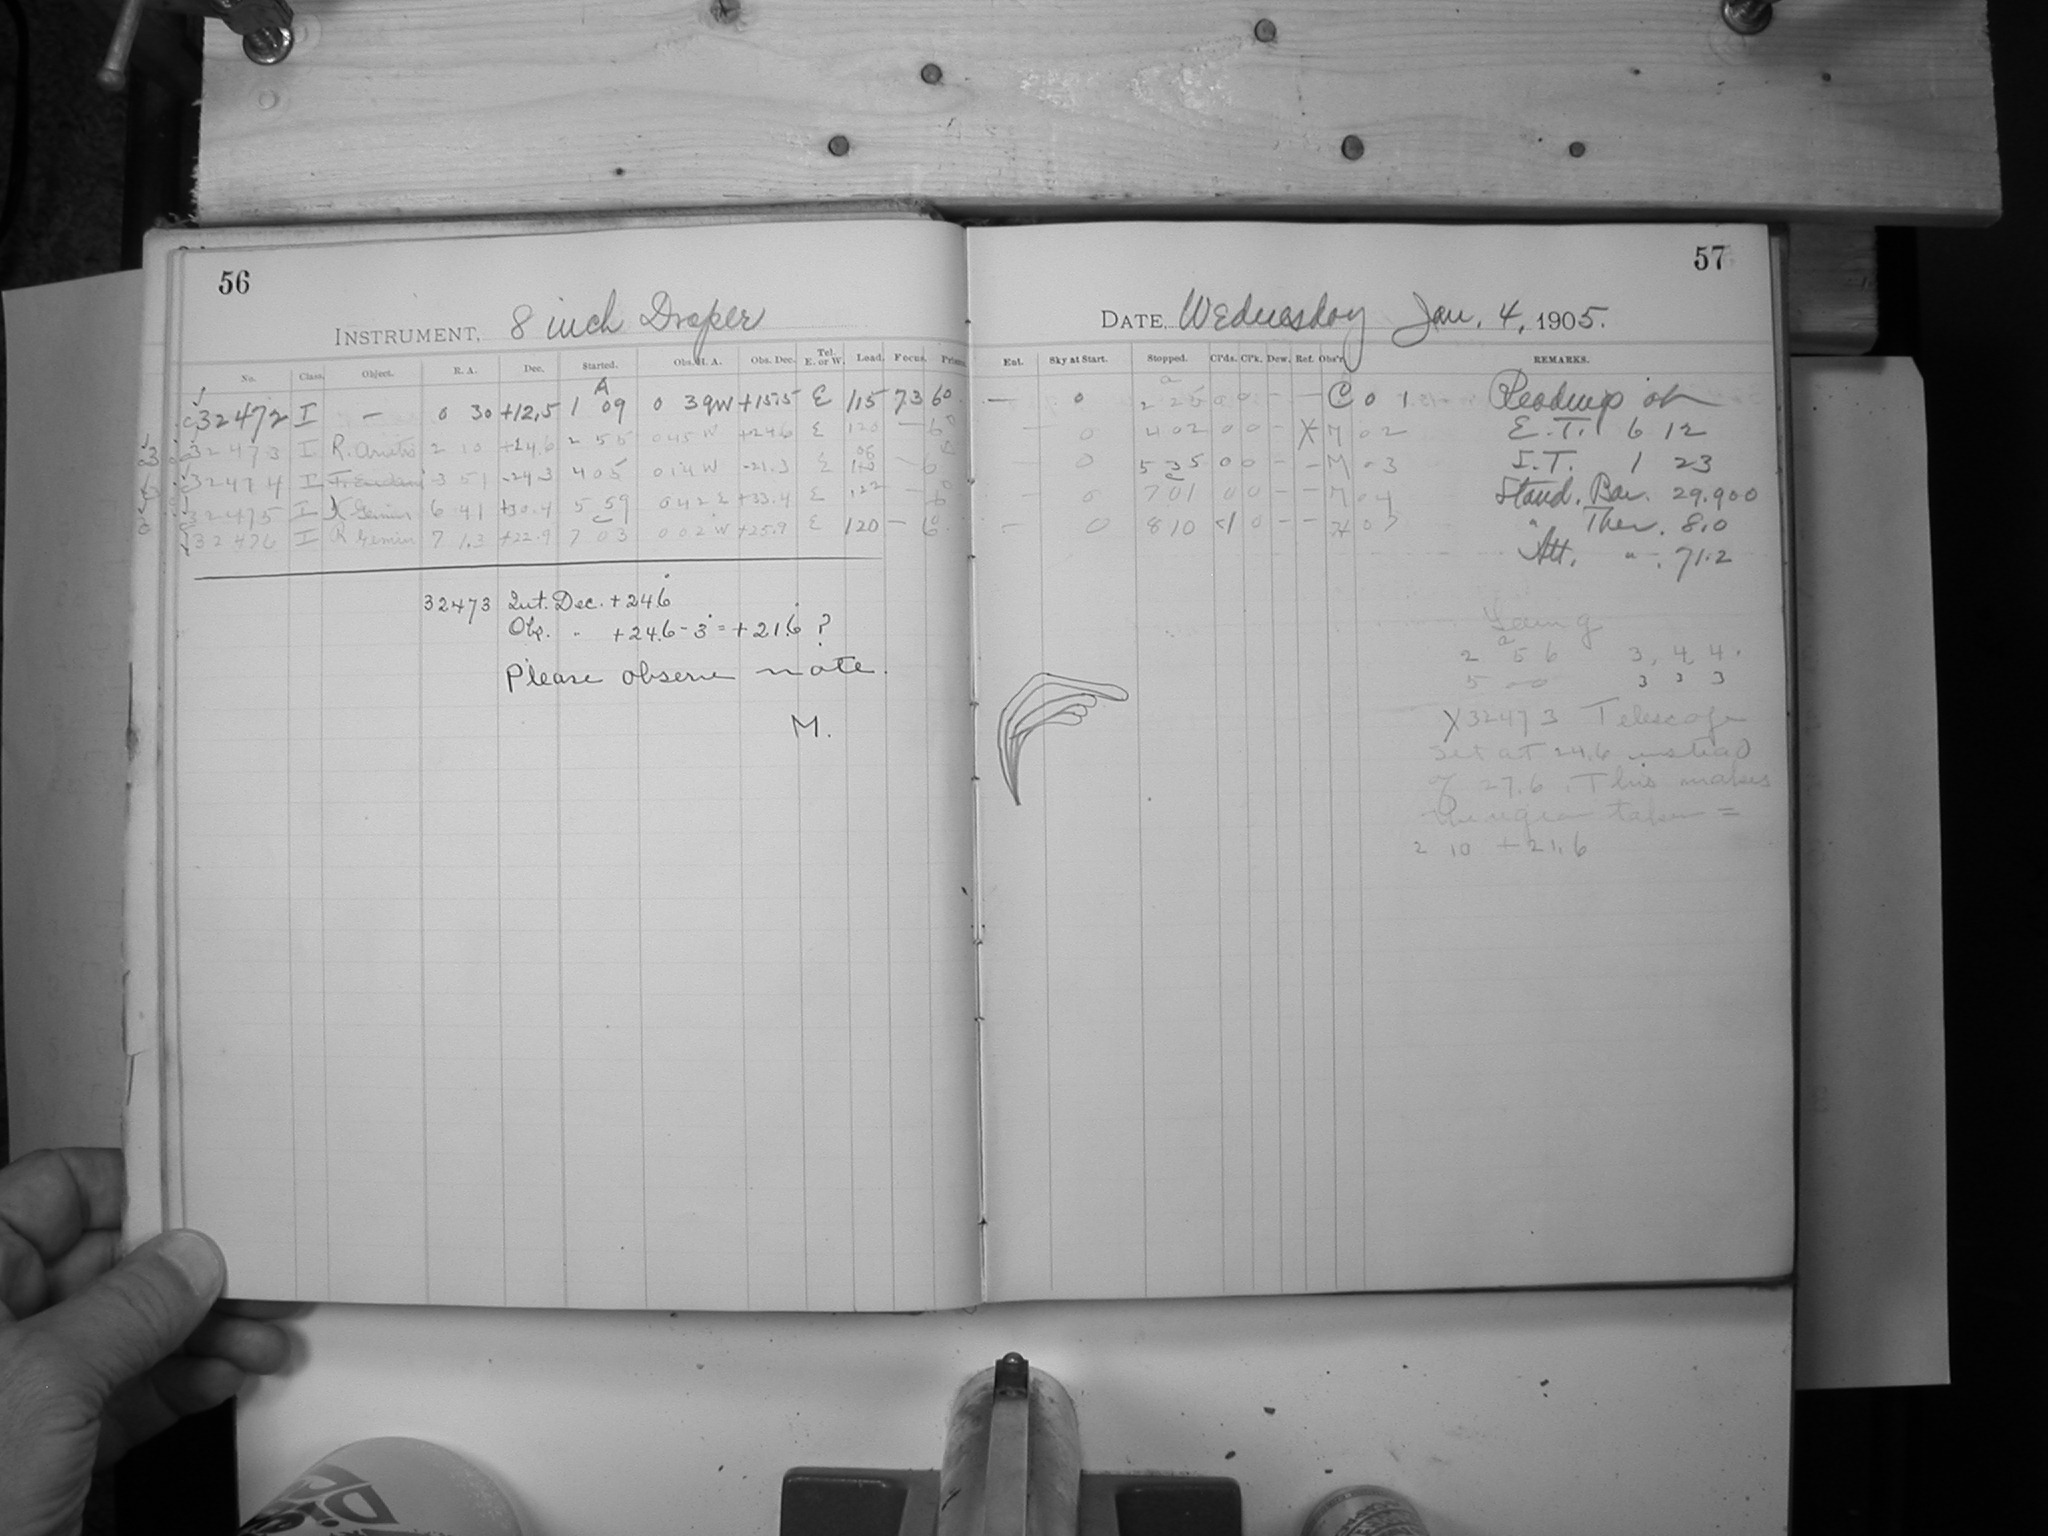 56
INSTRUMENT, 8 inch Draper
No. Class. Object. R. A. Dec. Started. Obs. H. A. Obs. Dec. Tel. E. or W. Lead. Focus.
32472 I — 0 30 +12.5 1 09 0 39 W +15.5 E 115 73 60
32473 I R. Arietis 2 10 +24.6 2 55 0 45 W +24.6 E 120 — 60
32474 I 3 51 -24.3 4 05 0 14 W -21.3 E — 60
32475 I X Gemin 6 41 +30.4 5 59 0 42 E +33.4 E 122 — 60
32476 I R Gemin 7 1.3 +22.9 7 03 0 02 W +25.9 E 120 — 60
32473 Int. Dec. +24.6
Obs. " +24.6 - 3 = +21.6 ?
Please observe note.
M.
57
DATE, Wednesday Jan. 4, 1905.
Ent. Sky at Start. Stopped. Cl'ds. Cl'k. Dew. Ref. Obs'r. REMARKS.
— 0 2 25 0 0 - - C 0 1
— 0 4 02 0 0 - X M 0 2
— 0 5 35 0 0 - - M 0 3
— 0 7 01 0 0 - - M 0 4
— 0 8 10 <1 0 - -
E. T. 6 12
I. T. 1 23
Stand. Bar. 29.900
" Ther. 8.0
Att. " 71.2
2 56 3, 4, 4.
5 00 3 3 3
X 32473 Telescope
set at 24.6 instead
of 27.6. This makes
the region taken =
2 10 +21.6